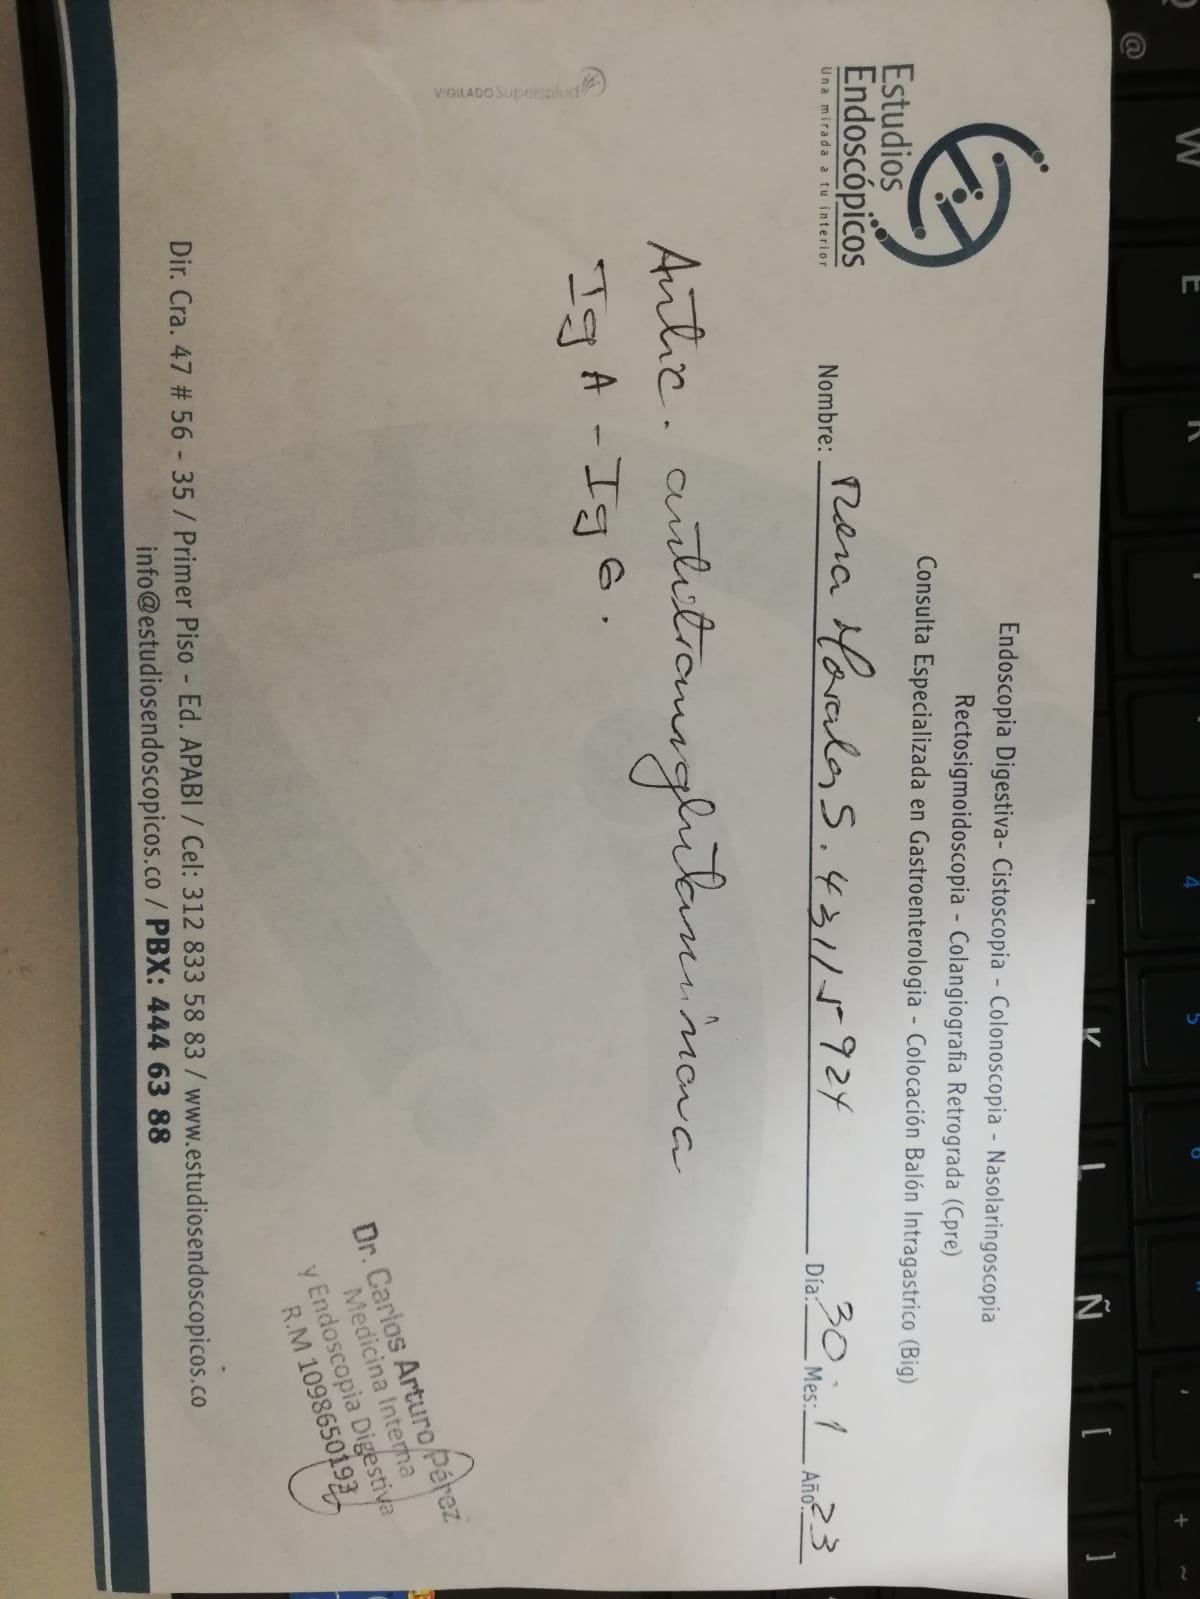 Estudios
Endoscópicos
Una mirada a tu interior
Endoscopia Digestiva- Cistoscopia - Colonoscopia - Nasolaringoscopia
Rectosigmoidoscopia - Colangiografia Retrograda (Cpre)
Consulta Especializada en Gastroenterologia - Colocación Balón Intragastrico (Big)
Nombre: Morales S. 43115924 Día: 30 Mes: 1 Año: 23
Antic. antitransglutaminasa
IgA - IgG.
VIGILADO Supersalud
Dr. Carlos Arturo Pérez
Medicina Interna
y Endoscopia Digestiva
R.M 1098650193
Dir. Cra. 47 # 56 - 35 / Primer Piso - Ed. APABI / Cel: 312 833 58 83 / www.estudiosendoscopicos.co
info@estudiosendoscopicos.co / PBX: 444 63 88
@
W
E
R
4
5
6
K
L
Ñ
[
]
+
~